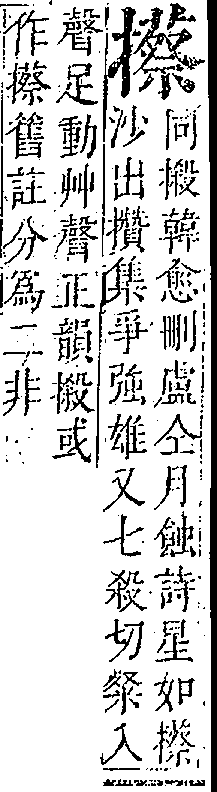 攃
同摋韓愈刪盧仝月蝕詩星如攃
沙出攢集爭強雄又七殺切粲入
聲足動艸聲正韻摋或
作攃舊註分為二非